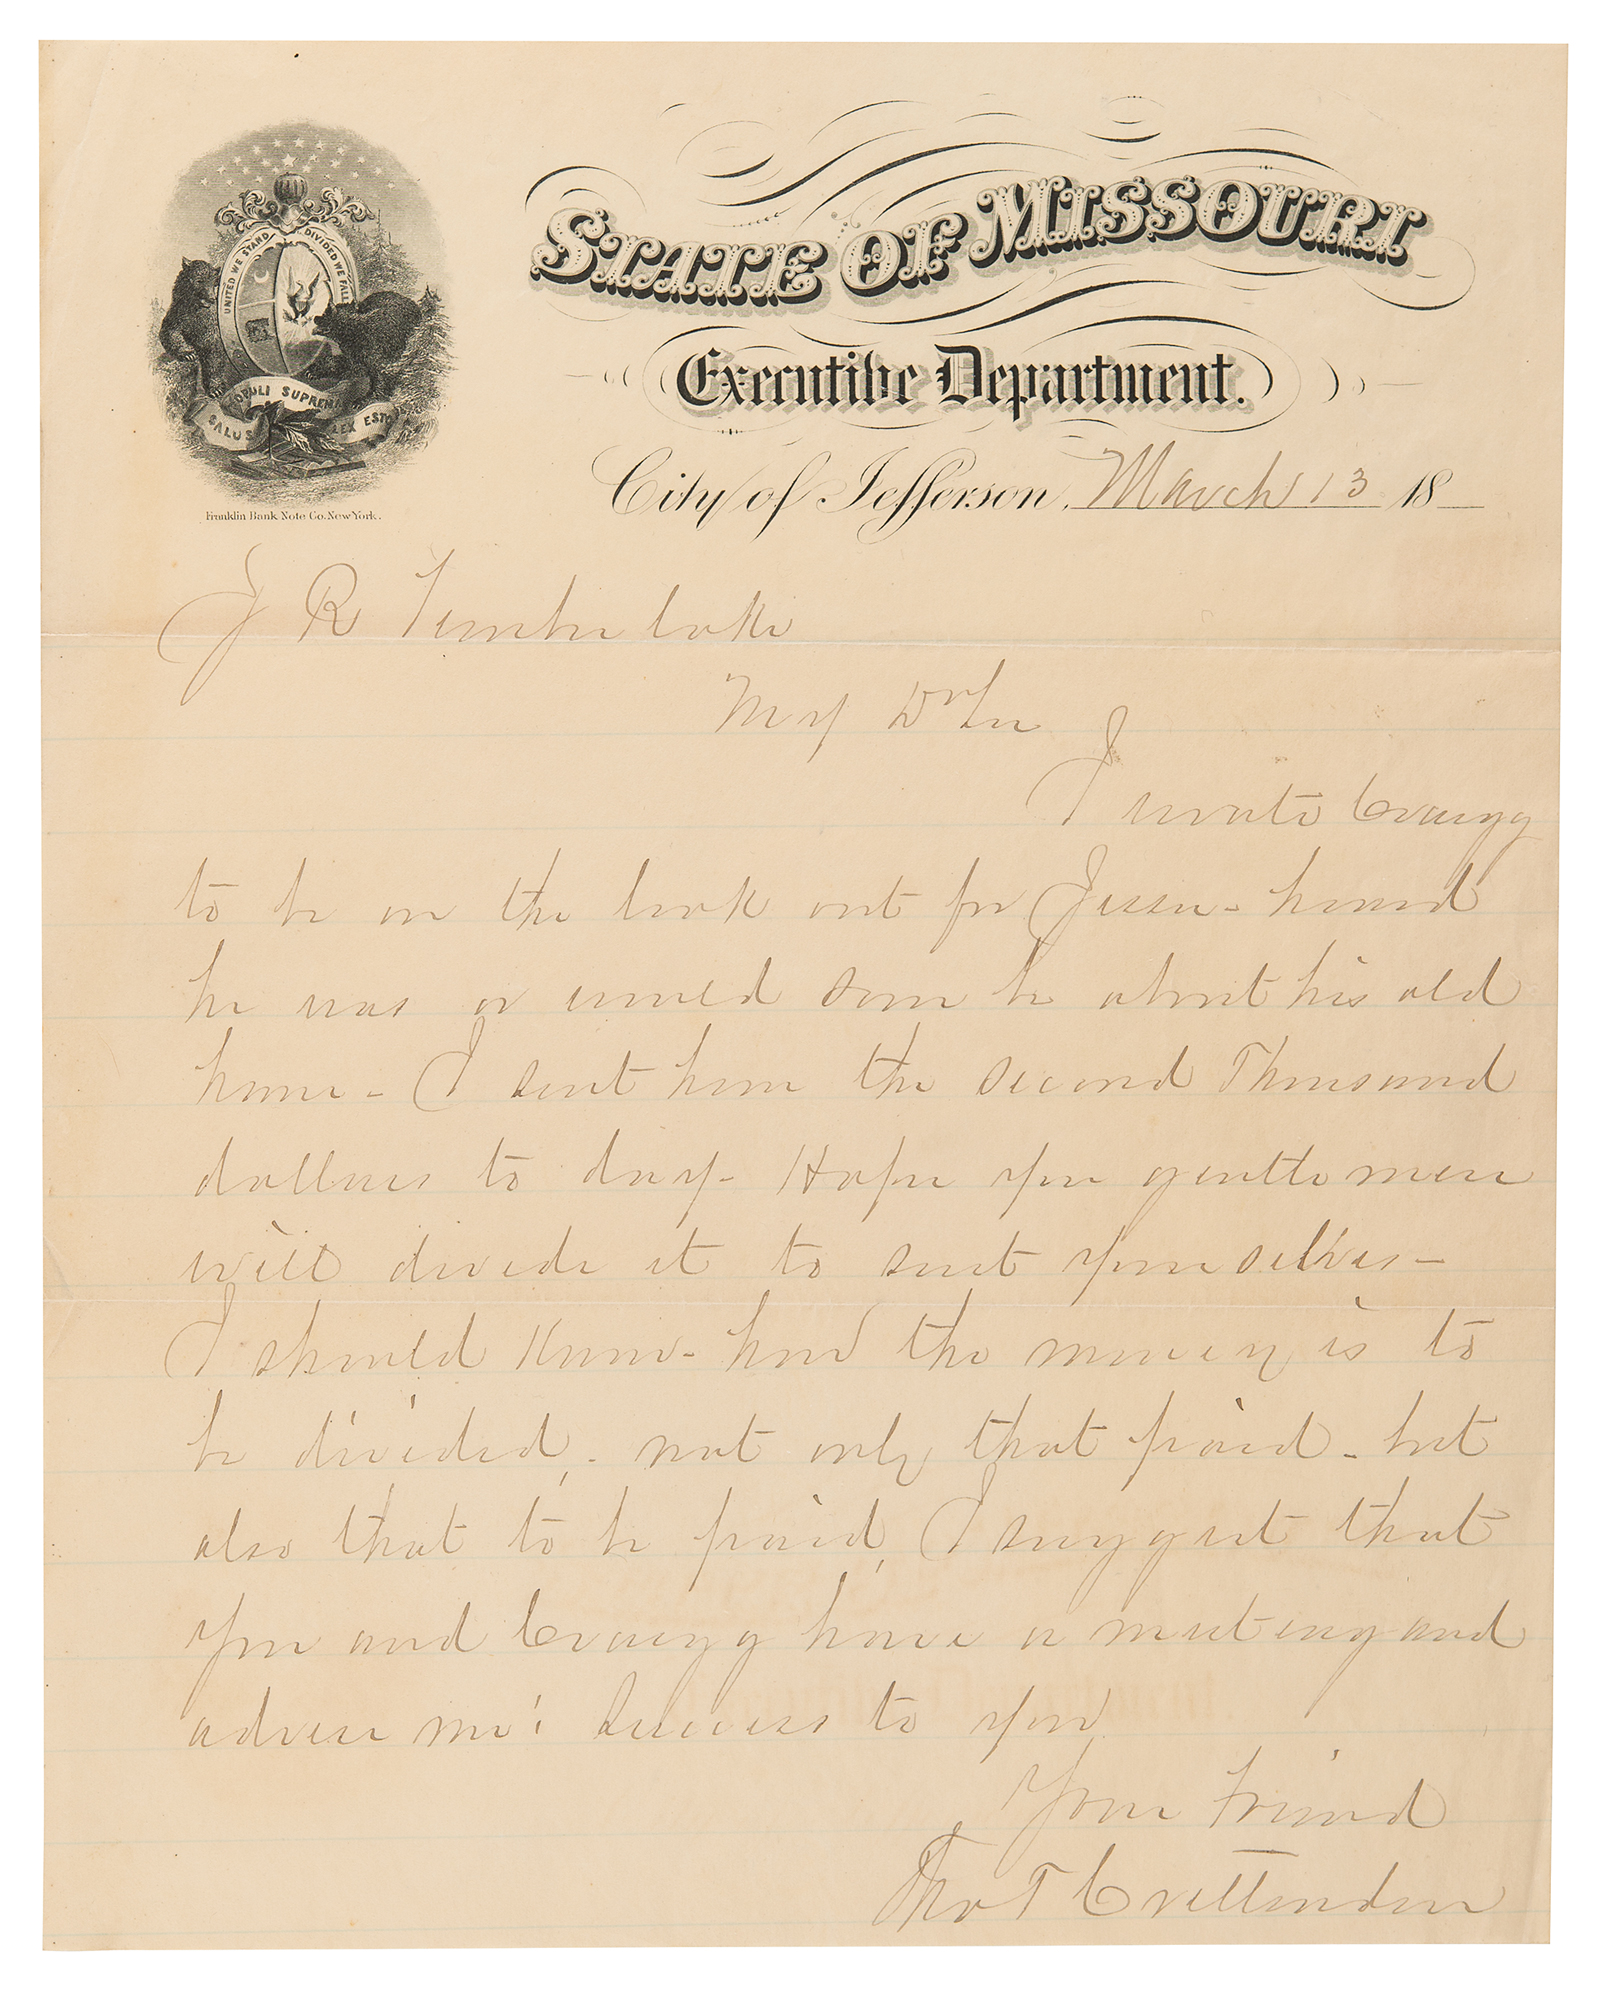 UNITED WE STAND DIVIDED WE FALL
SALUS POPULI SUPREMA LEX ESTO
Franklin Bank Note Co. New York.
STATE OF MISSOURI
Executive Department.
City of Jefferson, March 13 18
J R Timberlake
My Dr Sir
I wrote Craigg
to be on the look out for Jesse - heard
he was or would soon be about his old
home - I sent him the second Thousand
dollars to day - Hope you gentlemen
will divide it to suit yourselves -
I should know - how the money is to
be divided, - not only that paid - but
also that to be paid, I suggest that
you and Craigg have a meeting and
advise me: Success to you
Your Friend
Tho T Crittenden